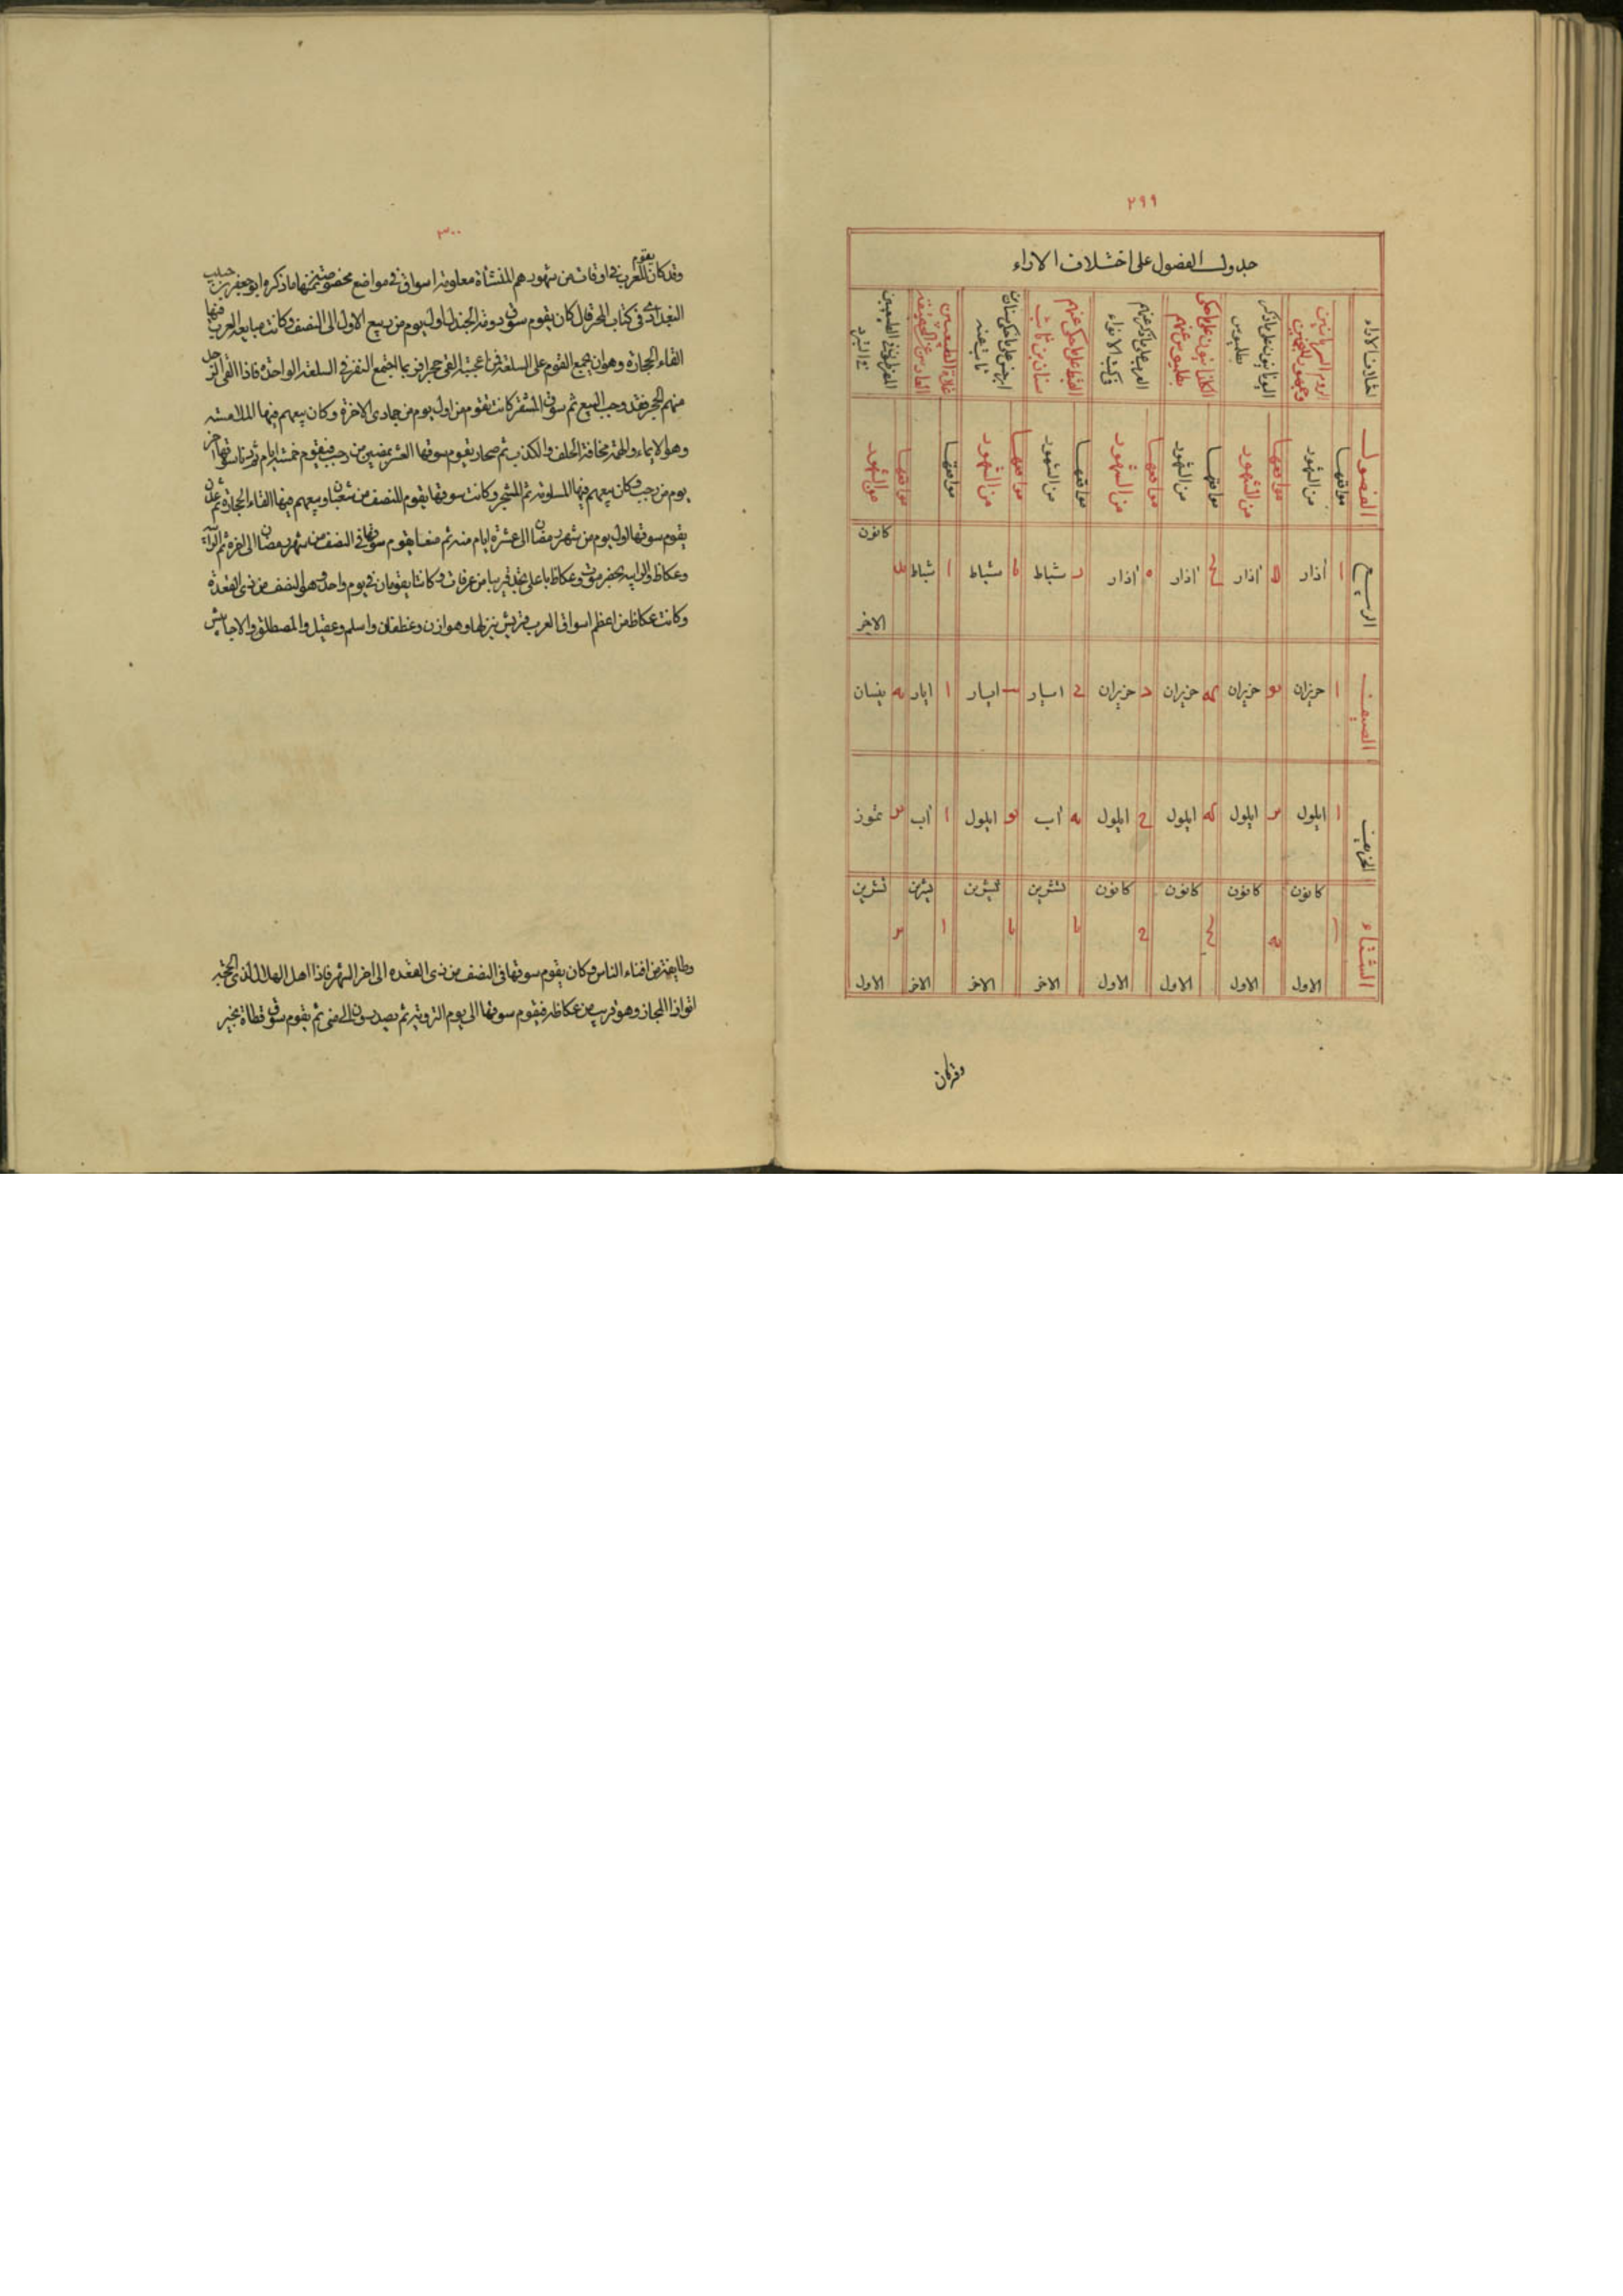 ٢٩٩
جدول الفصول على اختلاف الاراء
اختلاف الاراء
الروم والسريانيين
وجمهور المنجمين
اليونانيون على ما ذكر
بطلميوس
الكلدانيون على ما حكى
بطلميوس عنهم
العرب على ما ذكر عنهم
في كتب الانواء
القبط على ما حكى عنهم
سنان بن ثابت
ابرخس على ما حكى سنان بن
ثابت عنه
الفصول
مواقعها
من الشهور
مواقعها
من الشهور
مواقعها
من الشهور
مواقعها
من الشهور
مواقعها
من الشهور
مواقعها
من الشهور
مواقعها
مواقعها
من الشهور
الربيع ا آذار آذار آذار ه آذار شباط شباط ا شباط كانون الاخر
الصيف ا حزيران حزيران حزيران حزيران ايار ايار ا ايار نيسان
الخريف ا ايلول ايلول كه ايلول ايلول آب ايلول ا آب تموز
الشتاء ا كانون الاول كانون الاول كانون الاول كانون الاول تشرين الاخر تشرين الاخر ا تشرين الاخر تشرين الاول
وقد كان
٣٠٠
وقد كان يقوم للعرب في اوقات من شهورهم المنشأة معلومة اسواق في مواضع مخصوصة فمنها ما ذكره ابو جعفر بن حبيب
البغدادي في كتاب المحبر قال كان يقوم سوق دومة الجندل اول يوم من ربيع الاول الى النصف وكانت مبايعة العرب فيها
القاء الحجارة وهو ان يجمع القوم على السلعة فمن اعجبته القى حجرا فربما اجتمع النفر في السلعة الواحدة فاذا القى الرجل
منهم الحجر فقد وجب البيع ثم سوق المشقر كانت تقوم من اول يوم من جمادى الاخرة وكان بيعهم فيها الملامسة
وهو الايماء والهمهمة مخافة الحلف والكذب ثم صحار يقوم سوقها العشر يمضين من رجب فيقوم خمسة ايام ثم دبا سوقها اخر
يوم من رجب وكان بيعهم فيها المساومة ثم الشحر وكانت سوقها يقوم للنصف من شعبان وبيعهم فيها القاء الحجارة ثم عدن
يقوم سوقها اول يوم من شهر رمضان الى عشرة ايام منه ثم صنعا يقوم سوقها في النصف من شهر رمضان الى اخره ثم الرابية
وعكاظ والرابية بحضرموت وعكاظ با على نجد قريبا من عرفات وكانتا يقومان في يوم واحد وهو النصف من ذي القعدة
وكانت عكاظ من اعظم اسواق العرب قريش تنزلها وهوازن وغطفان واسلم وعقيل والمصطلق والاحابيش
وطايفة من افناء الناس وكان يقوم سوقها في النصف من ذي القعدة الى اخر الشهر فاذا اهل الهلال لذي الحجة
اتوا ذا المجاز وهو قريب من عكاظ فيقوم سوقها الى يوم التروية ثم يصدرون الى منى ثم يقوم سوق نطاة بخيبر